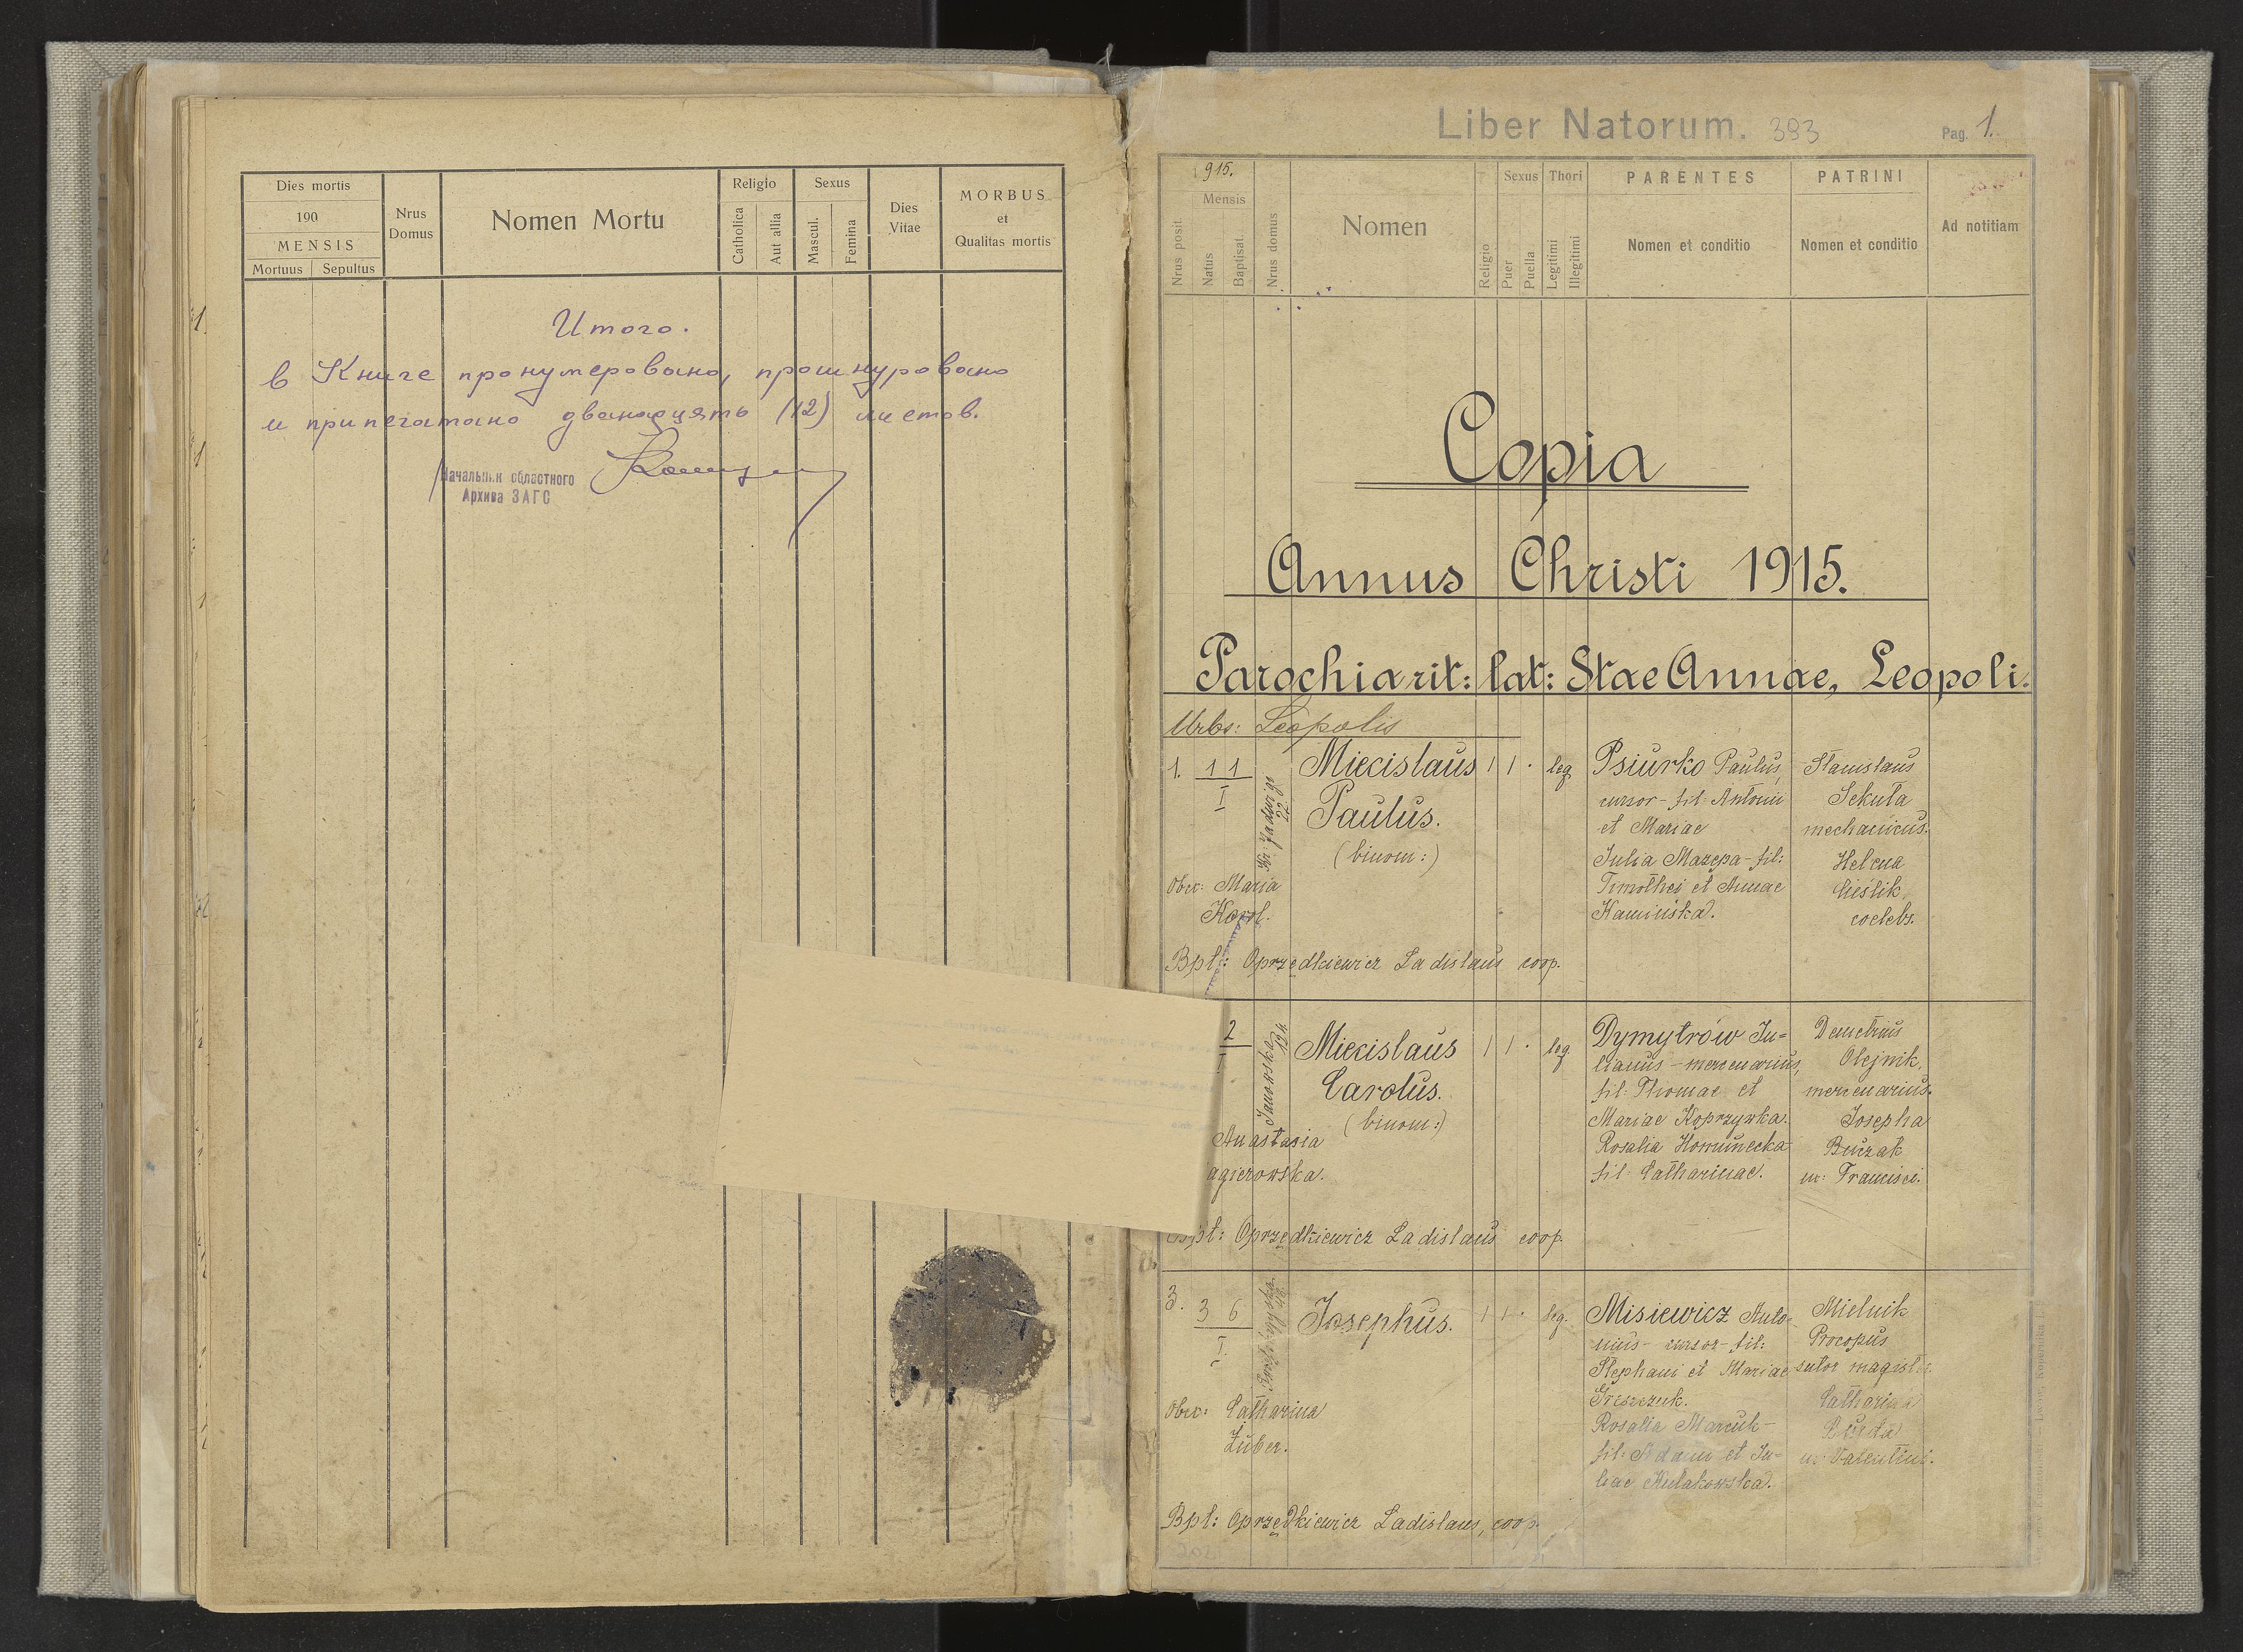 Dies mortis
190
MENSIS
Mortuus Sepultus
Nrus
Domus
Nomen Mortu
Religio
Catholica
Aut allia
Sexus
Mascul.
Femina
Dies
Vitae
MORBUS
et
Qualitas mortis
Итого.
в Книге пронумеровано, прошнуровано
и припечатано двенадцять (12) листов.
Начальник областного
Архива ЗАГС
Liber Natorum. 393
Pag. 1.
915.
Mensis
Nrus posit.
Natus
Baptisat.
Nrus domus
Nomen
Religio
Sexus
Puer
Puella
Thori
Legitimi
Illegitimi
PARENTES
Nomen et conditio
PATRINI
Nomen et conditio
Ad notitiam
Copia
Annus Christi 1915.
Parochia rit: lat: Stae Annae, Leopoli.
Urbs: Leopolis
1. 1 1
I
Kr. Jadwigi
22
Miecislaus
Paulus.
(binom:)
1 1 · leg
Psiurko Paulus,
cursor - fil: Antonii
et Mariae
Julia Mazepa - fil:
Timothei et Annae
Kamińska.
Stanislaus
Sekuła
mechanicus.
Helena
Cieślik
coelebs.
Obst: Maria
Karol.
Bpt: Oprzędkiewicz Ladislaus coop.
2
I
Janowska
124
Miecislaus
Carolus.
(binom:)
1 1 · leg.
Dymytrów Ju=
lianus - mercenarius,
fil: Thomae et
Mariae Koprzywka.
Rosalia Homuńecka
fil: Catharinae.
Demetrius
Olejnik,
mercenarius.
Josepha
Buczak
ux: Francisci.
Anastasia
agierowska.
Bpt: Oprzędkiewicz Ladislaus coop.
3. 3 6
I.
Josephus.
1 1 · leg.
Misiewicz Anto-
nius - cursor - fil:
Stephani et Mariae
Greszczuk.
Rosalia Marcuk -
fil: Adami et Ju=
liae Kułakowska.
Mielnik
Procopus
sutor magister.
Catharina
Burda
ux: Valentini.
Obst: Catharina
Zuber.
Bpt: Oprzędkiewicz Ladislaus, coop.